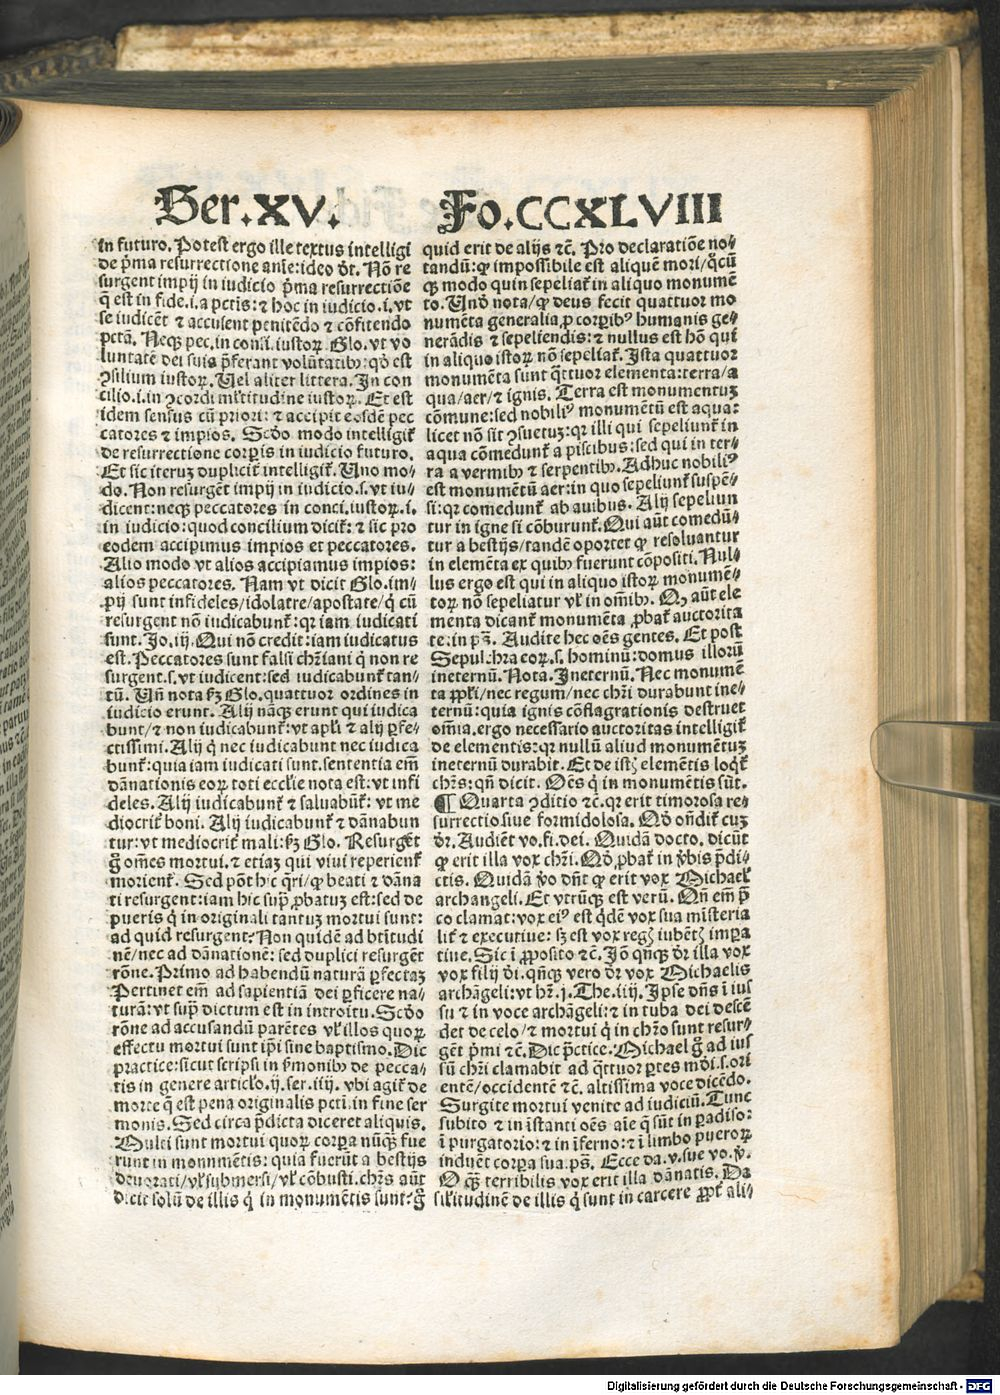 Ser.XV.
Fo.CCXLVIII
in futuro. Potest ergo ille textus intelligi
de p̄ma resurrectione anīe: ideo dr̄. Nō re
surgent impij in iudicio p̄ma resurrectiōe
q̄ est in fide .i. a pctīs: ⁊ hoc in iudicio .i. vt
se iudicēt ⁊ accusent penitēdo ⁊ cōfitendo
pctā. Neqꝫ pec. in consi. iustoꝝ. Glo. vt vo
luntatē dei suis p̄ferant volūtatibꝰ: qđ est
ꝯsilium iustoꝝ. Uel aliter littera. In con
cilio .i. in ꝯcordi mltitudine iustoꝝ. Et est
idem sensus cū priori: ⁊ accipit eosdē pec
catores ⁊ impios. Scdo modo intelligit̄
de resurrectione corpis in iudicio futuro.
Et sic iteruꝫ duplicit̄ intelligit̄. Uno mo-
do. Non resurgēt impij in iudicio .s. vt iu-
dicent: neqꝫ peccatores in conci. iustoꝝ .i.
in iudicio: quod concilium dicit̄: ⁊ sic pro
eodem accipimus impios et peccatores.
Alio modo vt alios accipiamus impios:
alios peccatores. Nam vt dicit Glo. im-
pij sunt infideles/idolatre/apostate/q̄ cū
resurgent nō iudicabunt̄: qꝛ iam iudicati
sunt. Jo. iij. Qui nō credit: iam iudicatus
est. Peccatores sunt falsi chr̄iani q̄ non re
surgent .s. vt iudicent: sed iudicabunt̄ tan-
tū. Un̄ nota ẜm Glo. quattuor ordines in
iudicio erunt. Alij nāqꝫ erunt qui iudica
bunt/⁊ non iudicabunt̄: vt apłi ⁊ alij ꝑfe-
ctissimi. Alij q̄ nec iudicabunt nec iudica
bunt̄: quia iam iudicati sunt. sententia em̄
dānationis eoꝝ toti ecclīe nota est: vt infi
deles. Alij iudicabunt̄ ⁊ saluabūt̄: vt me
diocrit̄ boni. Alij iudicabunt̄ ⁊ dānabun
tur: vt mediocrit̄ mali: ẜm Glo. Resurgēt
g̊ om̄es mortui. ⁊ etiaꝫ qui viui reperient̄
morient̄. Sed pōt hic q̄ri/ꝙ beati ⁊ dāna
ti resurgent: iam hic supͣ ꝓbatuꝫ est: sed de
pueris q̄ in originali tantuꝫ mortui sunt:
ad quid resurgent? Non quidē ad btītudi
nē/nec ad dānatione: sed duplici resurgēt
rōne. Primo ad habendū naturā ꝑfectaꝫ
Pertinet em̄ ad sapientiā dei ꝑficere na-
turā: vt supͣ dictum est in introitu. Scdo
rōne ad accusandū parētes vł illos quoꝝ
effectu mortui sunt ip̄i sine baptismo. Dic
practice: sicut scripsi in ẜmonibꝰ de pecca-
tis in genere articlo .ij. ser. iiij. vbi agit̄ de
morte q̄ est pena originalis pctī. in fine ser
monis. Sed circa p̄dicta diceret aliquis.
Multi sunt mortui quoꝝ corpa nūqꝫ fue
runt in monumētis: quia fuerūt a bestijs
deuorati/vł submersi/vł cōbusti. chr̄s aūt
dicit solū de illis q̄ in monumētis sunt: g̊
quid erit de alijs ⁊c̄. Pro declaratiōe no-
tandū: ꝙ impossibile est aliquē mori/q̄cū
qꝫ modo quin sepeliat̄ in aliquo monumē
to. Unđ nota/ꝙ deus fecit quattuor mo
numēta generalia ꝓ corpibꝰ humanis ge-
nerādis ⁊ sepeliendis: ⁊ nullus est hō qui
in aliquo istoꝝ nō sepeliat̄. Ista quattuor
monumēta sunt q̄ttuor elementa: terra/a
qua/aer/⁊ ignis. Terra est monumentuꝫ
cōmune: sed nobiliꝰ monumētū est aqua:
licet nō sit ꝯsuetuꝫ: qꝛ illi qui sepeliunt̄ in
aqua cōmedunt̄ a piscibus: sed qui in ter-
ra a vermibꝰ ⁊ serpentibꝰ. Adhuc nobiliꝰ
est monumētū aer: in quo sepeliunt̄ suspē-
si: qꝛ comedunt̄ ab auibus. Alij sepeliun
tur in igne si cōburunt̄. Qui aūt comedū-
tur a bestijs/tandē oportet ꝙ resoluantur
in elemēta ex quibꝰ fuerunt cōpositi. Nul-
lus ergo est qui in aliquo istoꝝ monumē-
toꝝ non sepeliatur vł in om̄ibꝰ. Qꝙ aūt ele
menta dicant̄ monumēta ꝓbat̄ auctorita
te: in pꝫ. Audite hec oēs gentes. Et post
Sepulchra coꝝ .s. hominū: domus illorū
ineternū. Nota. Ineternū. Nec monumē
ta ppłi/nec regum/nec chr̄i durabunt ine-
ternū: quia ignis cōflagrationis destruet
om̄ia. ergo necessario auctoritas intelligit̄
de elementis: qꝛ nullū aliud monumētuꝫ
ineternū durabit. Et de istꝭ elemētis loqt̄
chr̄s: qn̄ dicit. Oēs q̄ in monumētis sūt.
¶ Quarta ꝯditio ⁊c̄. qꝛ erit timorosa re-
surrectio siue formidolosa. Qđ on̄dit̄ cuꝫ
dr̄. Audiēt vo. fi. dei. Quidā docto. dicūt
ꝙ erit illa vox chr̄i. Qđ ꝓbat̄ in v̄bis p̄di-
ctis. Quidā v̄o dn̄t ꝙ erit vox Michael̄
archangeli. Et vtrūqꝫ est verū. Qn̄ em̄ p̄
co clamat: vox eiꝰ est q̄dē vox sua misteria
lit̄ ⁊ executiue: sꝫ est vox regꝭ iubētꝭ impa
tiue. Sic ī ꝓposito ⁊c̄. Jō qn̄qꝫ dr̄ illa vox
vox filij đi. qn̄qꝫ vero dr̄ vox Michaelis
archāgeli: vt hr̄. j. The. iiij. Ipse dn̄s ī ius
su ⁊ in voce archāgeli: ⁊ in tuba dei descē
det de celo/⁊ mortui q̄ in chr̄o sunt resur-
gēt p̄mi ⁊c̄. Dic p̄ctice. Michael g̊ ad ius
sū chr̄i clamabit ad q̄ttuor ꝑtes mđi .s. ori
entē/occidentē ⁊c̄. altissima voce dicēdo.
Surgite mortui venite ad iudiciū. Tunc
subito ⁊ in īstanti oēs aīe q̄ sūt in ꝑadiso:
ī purgatorio: ⁊ in īferno: ⁊ ī limbo pueroꝝ
induēt corpa sua. pꝫ. Ecce da. v. sue vo. v̄.
O q̄ꝫ terribilis vox erit illa dānatis. Da
silitudinē de illis q̄ sunt in carcere ꝓpt̄ ali-
Digitalisierung gefördert durch die Deutsche Forschungsgemeinschaft - DFG